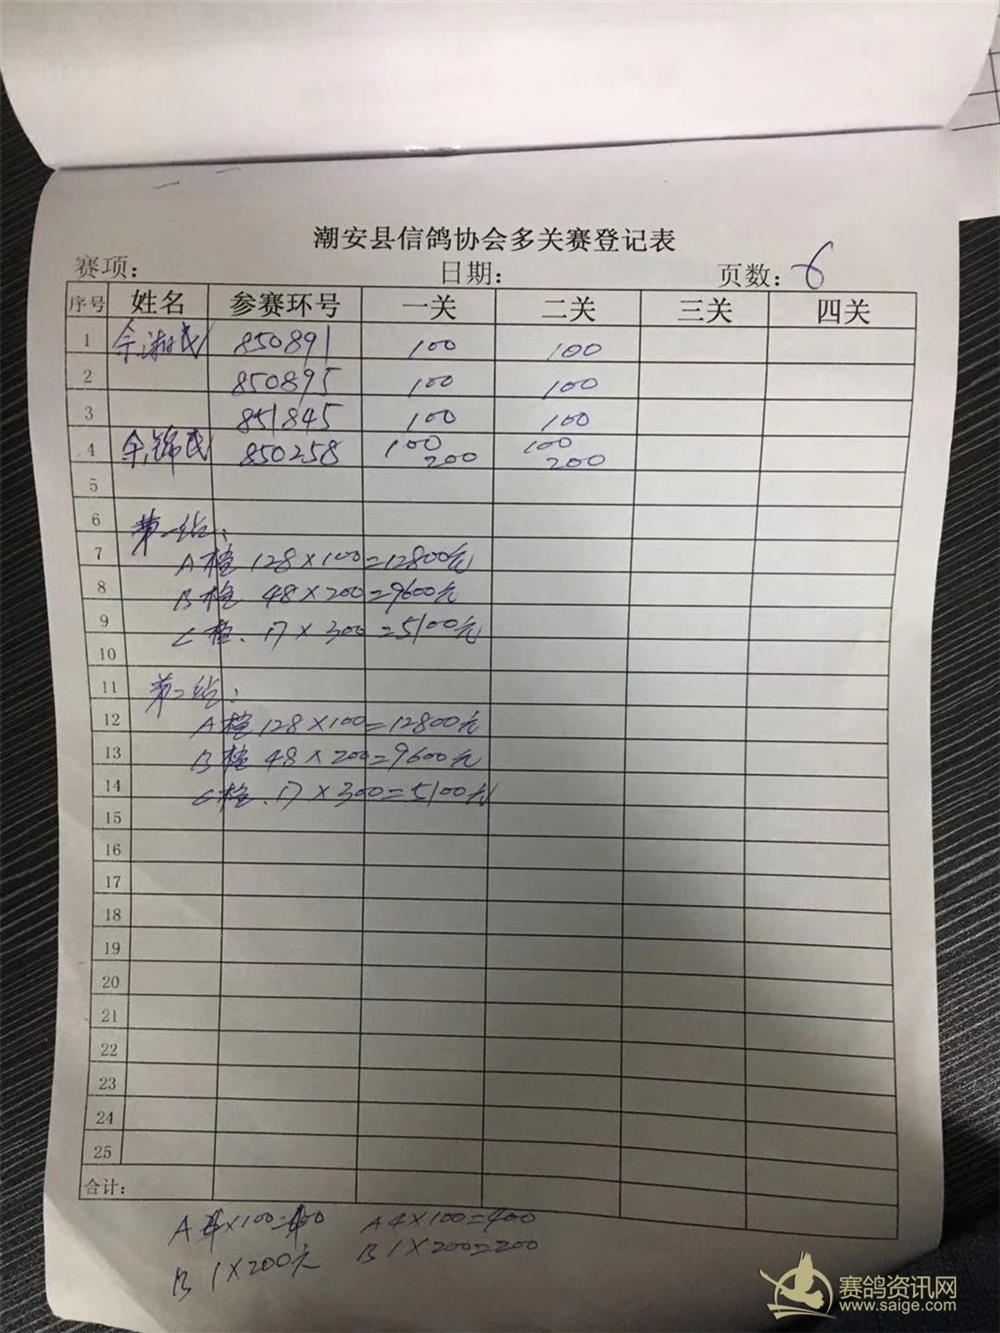 潮安县信鸽协会多关赛登记表
赛项: 日期: 页数: 6
序号 姓名 参赛环号 一关 二关 三关 四关
1 余湘民 850891 100 100
2 850895 100 100
3 851845 100 100
4 余锦民 850258 100 200 100 200
5
6 第一站:
7 A档 128×100=12800元
8 B档 48×200=9600元
9 C档. 17×300=5100元
10
11 第二站:
12 A档 128×100=12800元
13 B档 48×200=9600元
14 C档. 17×300=5100元
15
16
17
18
19
20
21
22
23
24
25
合计:
A 4×100=400 A4×100=400
B 1×200元 B 1×200=200
赛鸽资讯网
www.saige.com